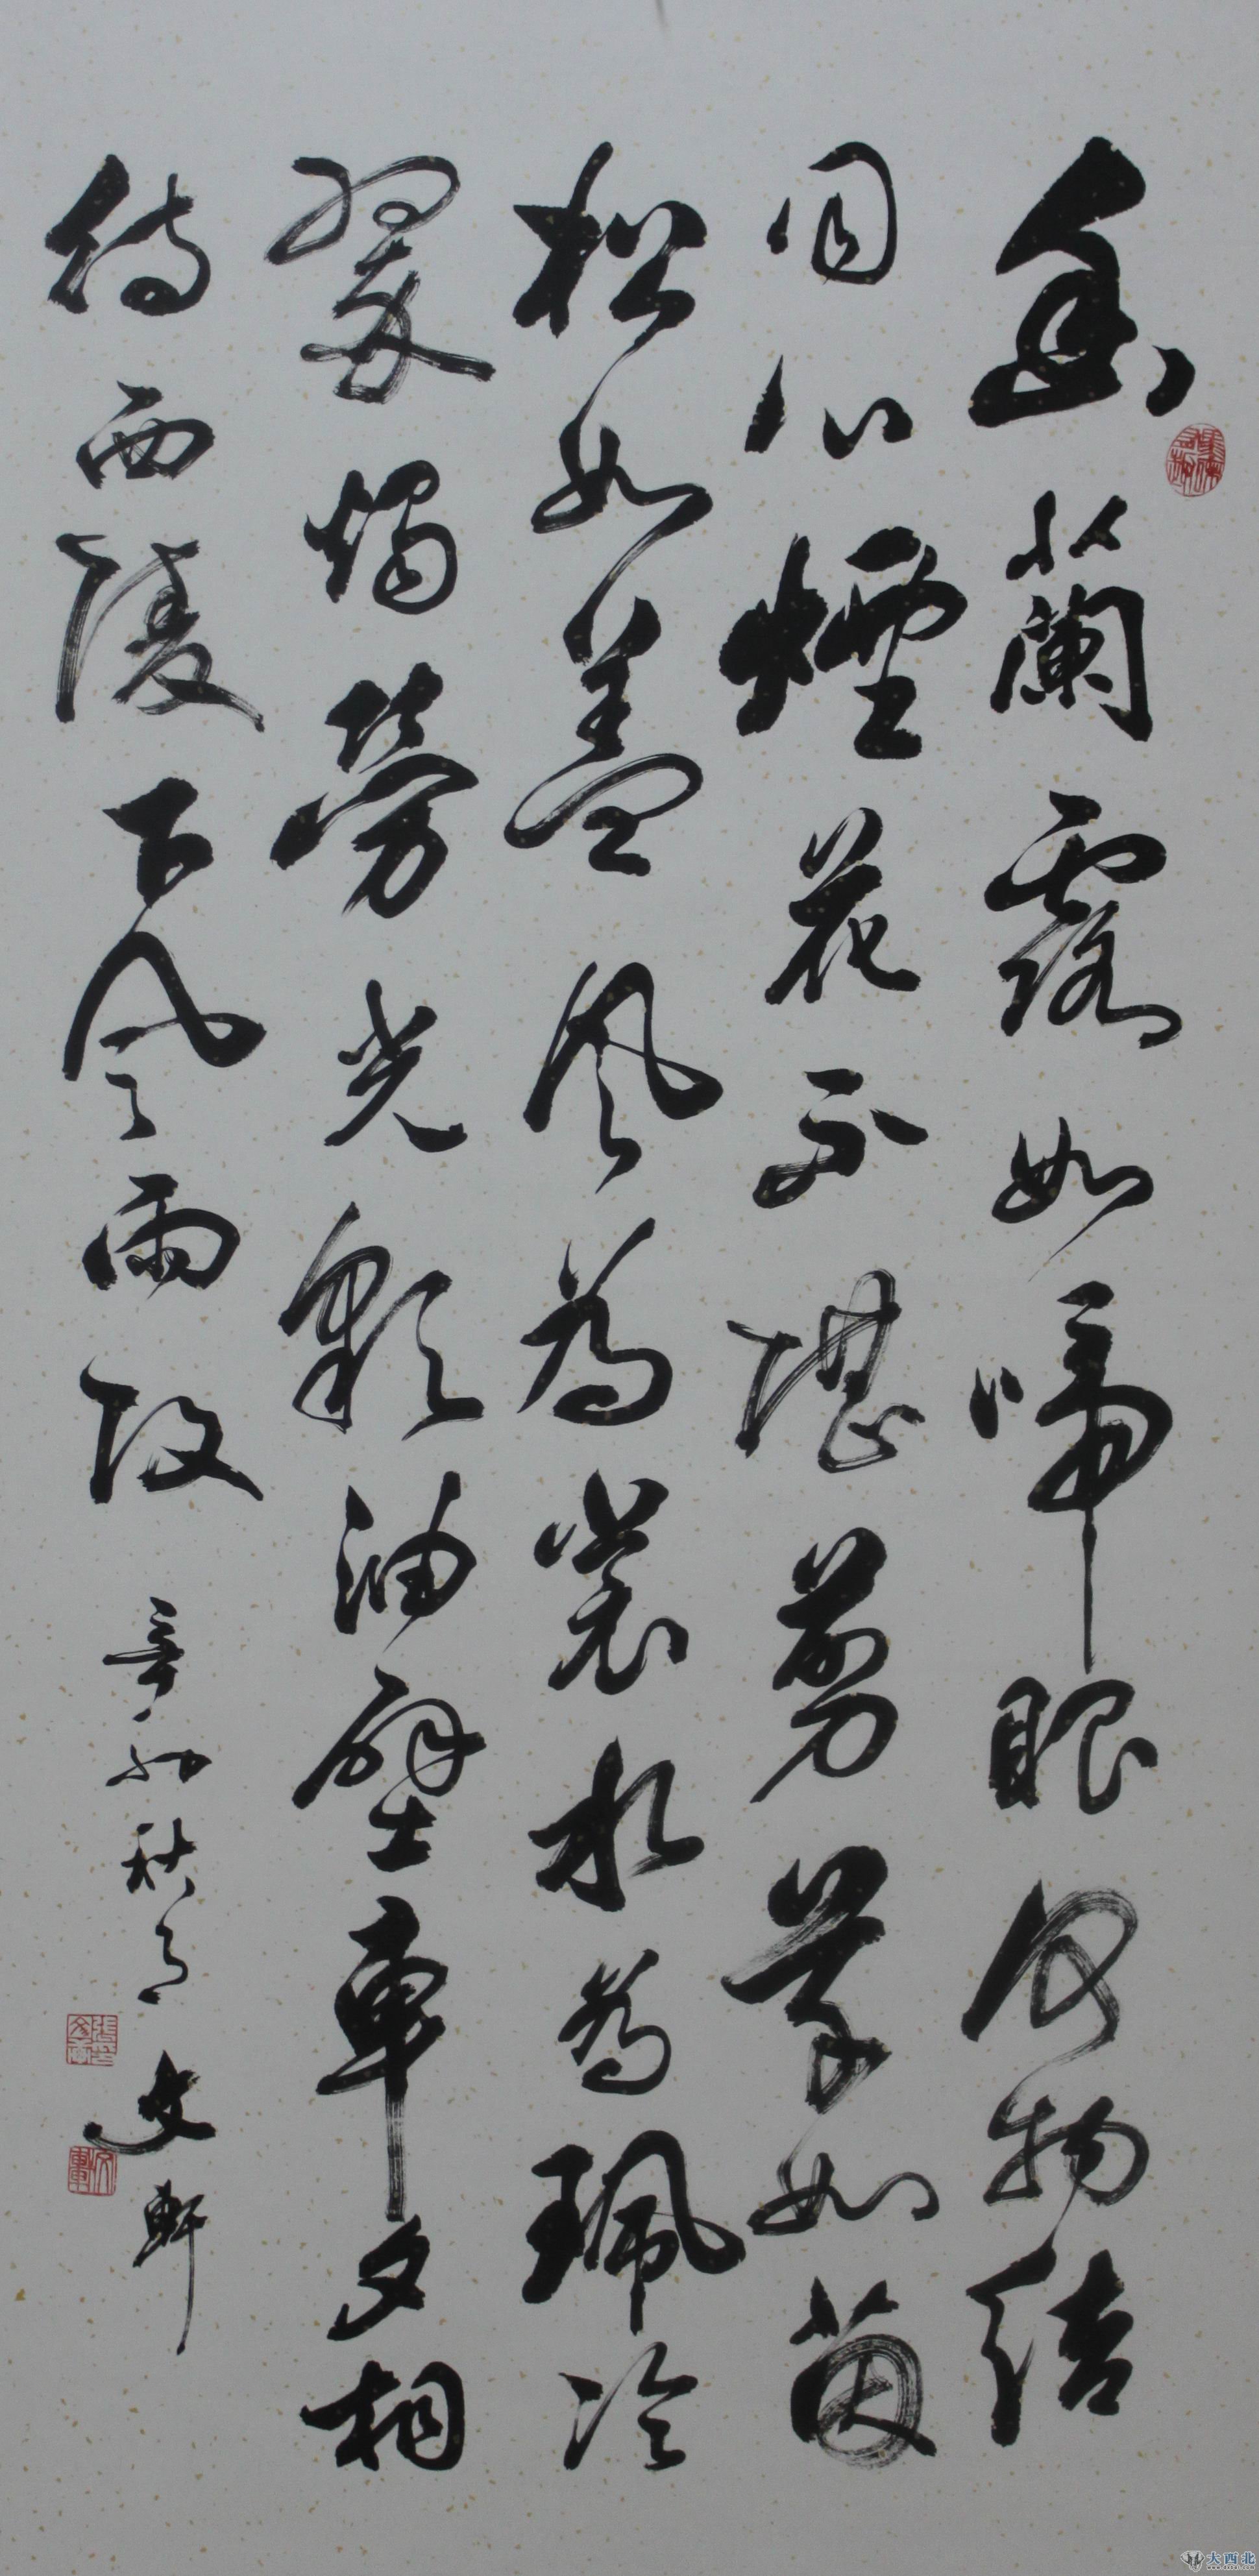 幽蘭露如啼眼無物結
同心煙花不堪剪草如茵
松如蓋風為裳水為珮冷
翠燭勞光彩油壁車夕相
待西陵下風雨
辛卯秋月 文軒
大西北